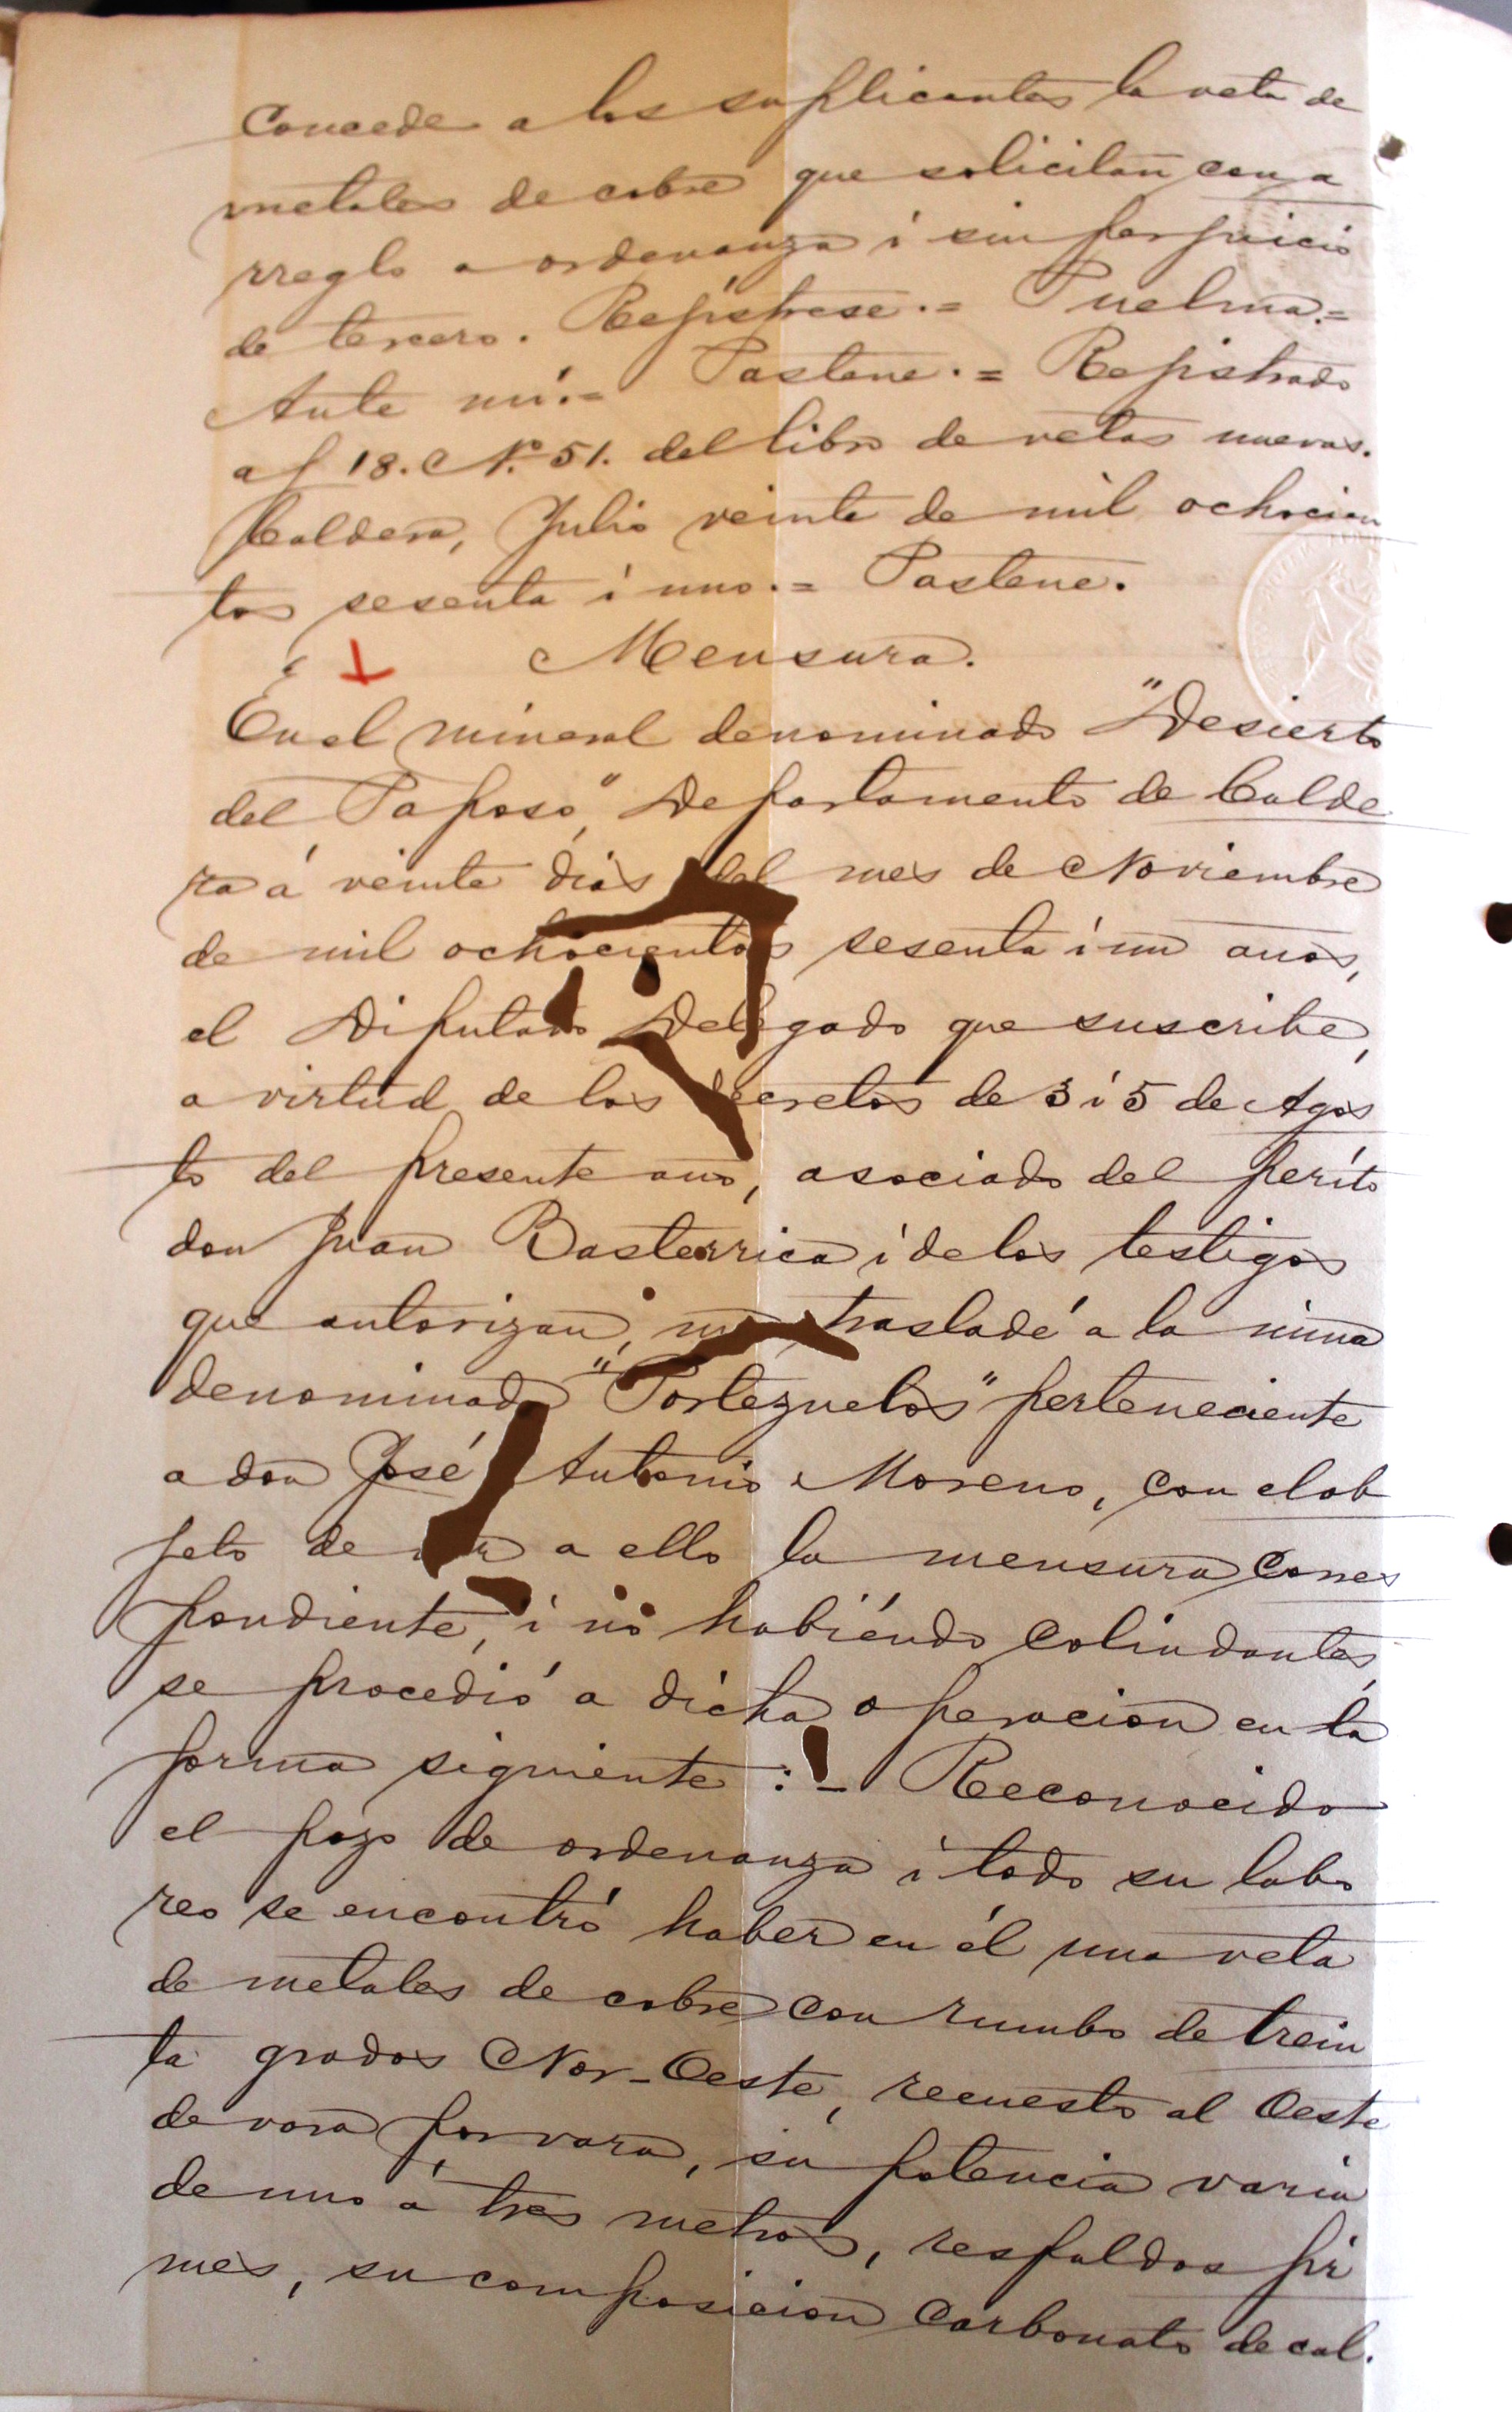 Concede a los suplicantes la veta de
metales de cobre que solicitan con a
rreglo a ordenanza i sin perjuicio
de tercero. Rejístrese.= Puelma.=
Ante mí.= Pastene.= Rejistrado
a f 18. Nº 51. del libro de vetas nuevas.
Caldera, Julio veinte de mil ochocien
tos sesenta i uno.= Pastene.
Mensura.
En el mineral denominado "Desierto
del Paposo", Departamento de Calde
ra á veinte dias del mes de Noviembre
de mil ochocientos sesenta i un años,
el Diputado Delegado que suscribe,
a virtud de los decretos de 3 i 5 de Agos
to del presente año, asociado del períto
don Juan Basterrica i de los testigos
que autorizan, me trasladé a la mina
denominada "Portezuelos" perteneciente
a don José Antonio Moreno, con el ob
jeto de dar a ella la mensura corres
pondiente, i no habiéndo colindantes,
se procedió a dicha operacion en la
forma siguiente :- Reconocido
el pozo de ordenanza i todo su labo
reo se encontró haber en él una veta
de metales de cobre con rumbo de trein
ta grados Nor-Oeste, recuesto al Oeste
de vara por vara, su potencia varia
de uno a tres metros, respaldos fir
mes, su composicion carbonato de cal.